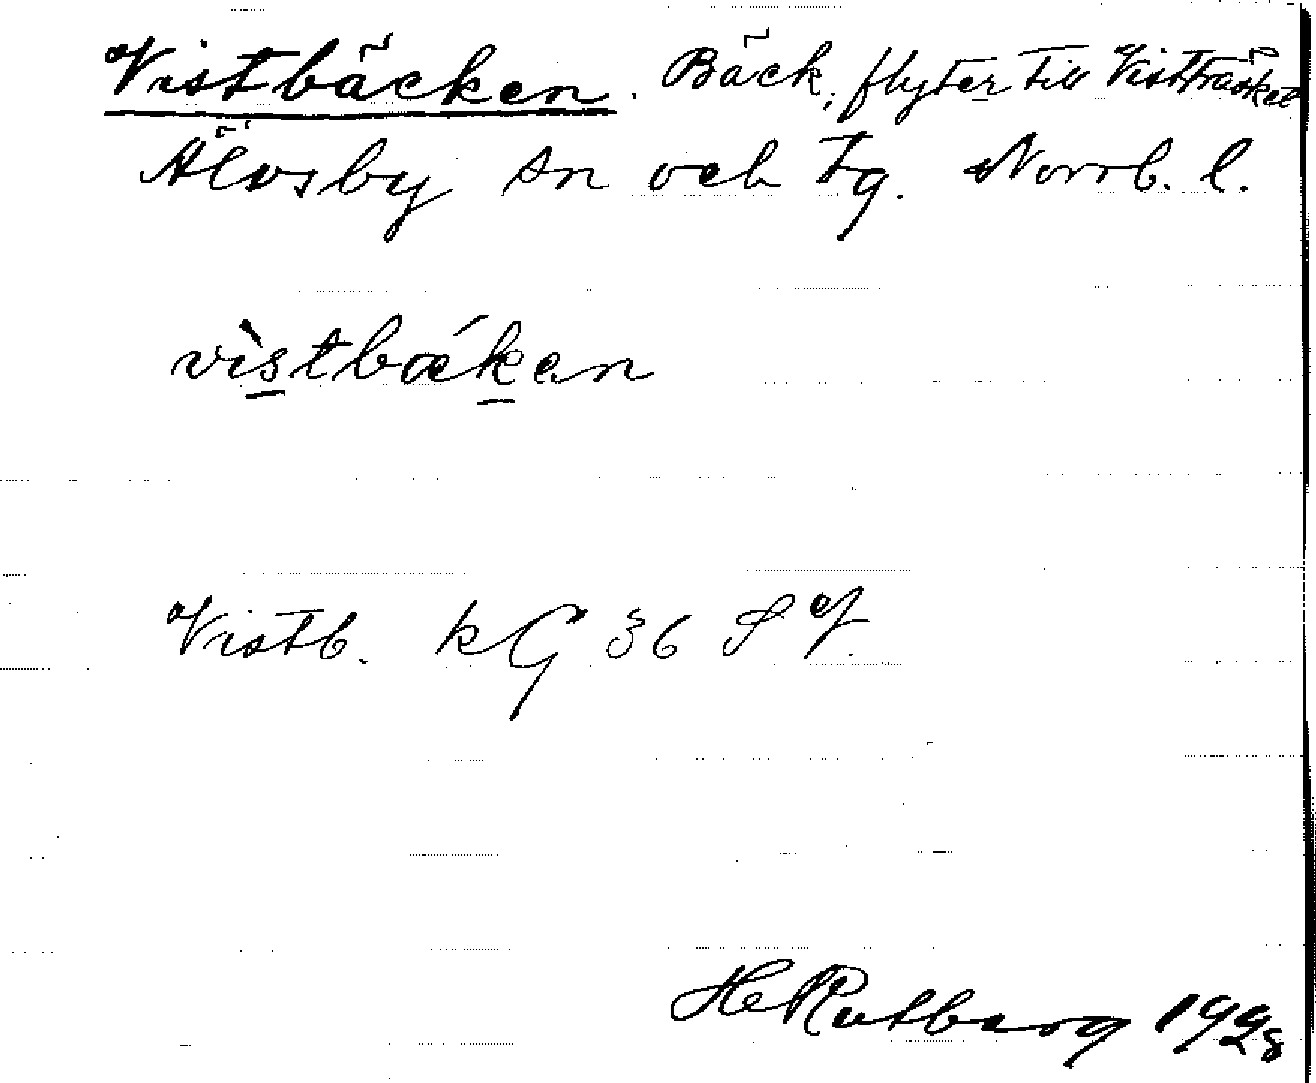 Vistbäcken. Bäck, flyter till Vistträsket
Älvsby sn och tg. Norrb. l.
vìstbæken
Vistb. kG 36
Rutberg 1928